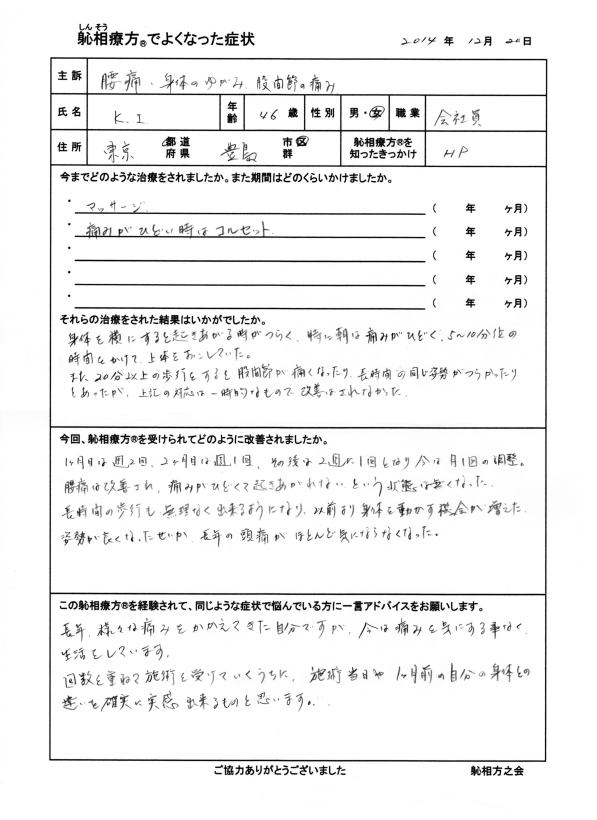 しん そう
鮐相療方®でよくなった症状
2014 年 12月 20日
主訴 腰痛、身体のゆがみ、股関節の痛み
氏名 K. I. 年齢 46 歳 性別 男・女 職業 会社員
住所 東京 都道府県 豊島 市区群 相療方®を知ったきっかけ HP
今までどのような治療をされましたか。また期間はどのくらいかけましたか。
・マッサージ ( 年 ヶ月)
・痛みがひどい時はコルセット ( 年 ヶ月)
・ ( 年 ヶ月)
・ ( 年 ヶ月)
・ ( 年 ヶ月)
それらの治療をされた結果はいかがでしたか。
身体を横にすると起きあがる時がつらく、特に朝は痛みがひどく、5〜10分位の
時間をかけて、上体をおこしていた。
また20分以上の歩行をすると股関節が痛くなったり、長時間の同じ姿勢がつらかったり
とあったが、上記の対応は一時的なもので改善はされなかった。
今回、相療方®を受けられてどのように改善されましたか。
1ヶ月目は週2回、2ヶ月目は週1回、その後は2週に1回となり今は月1回の調整。
腰痛は改善され、痛みがひどくて起きあがれないという状態は無くなった。
長時間の歩行も無理なく出来るようになり、以前より身体を動かす機会が増えた。
姿勢が良くなったせいか、長年の頭痛がほとんど気にならなくなった。
この相療方®を経験されて、同じような症状で悩んでいる方に一言アドバイスをお願いします。
長年、様々な痛みをかかえてきた自分ですが、今は痛みを気にする事なく、
生活をしています。
回数を重ねて施術を受けていくうちに、施術当日や1ヶ月前の自分の身体との
違いを確実に実感出来るものと思います。
ご協力ありがとうございました
相方之会